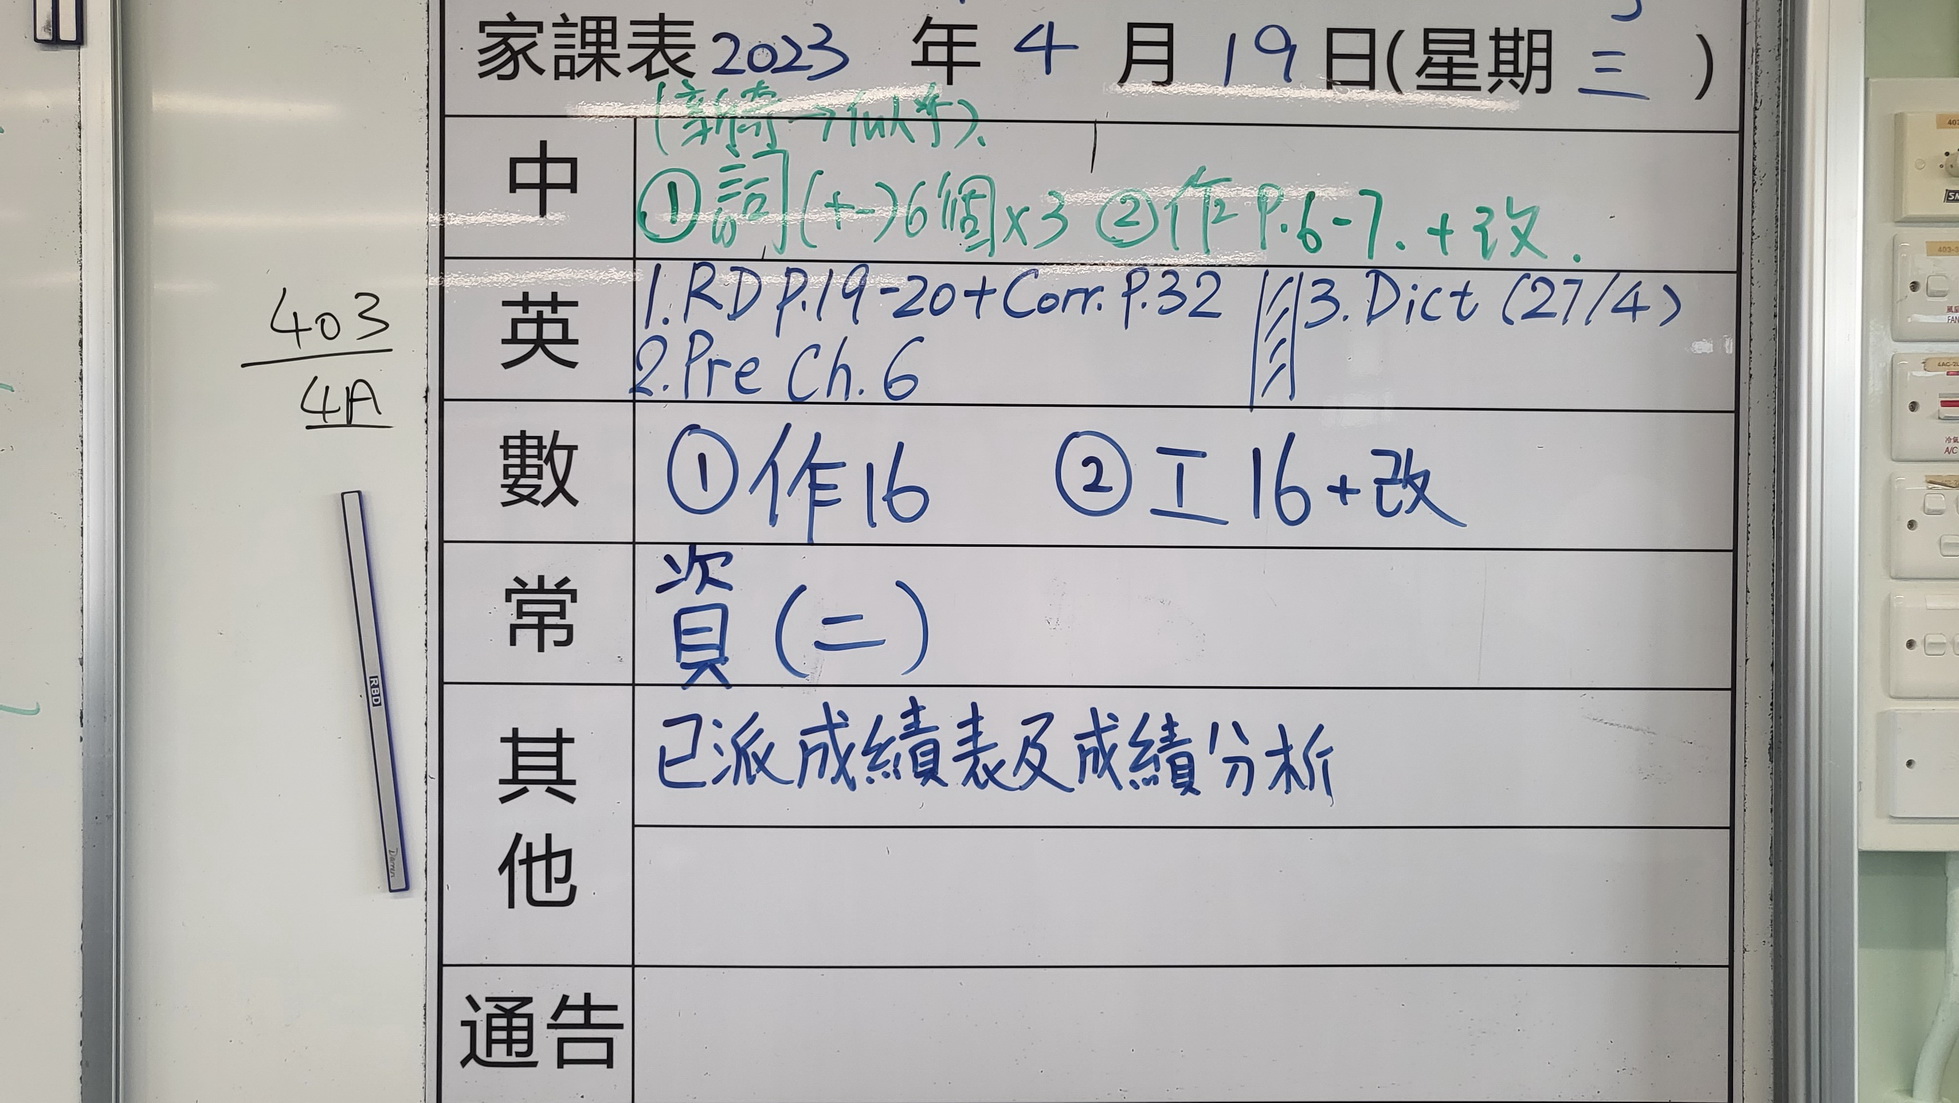 家課表 2023 年 4 月 19 日(星期 三 )
中
①詞(十一)6個x3 ②作P.6-7.+改.
英
1.RD P.19-20+Corr.P.32 3.Dict (27/4)
2.Pre Ch.6
數
①作16 ②工16+改
常
資(二)
其他
已派成績表及成績分析
通告
403
4A
RBD